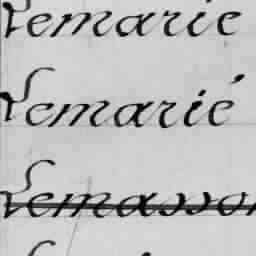 Lemarie
Lemarié
Lemasson